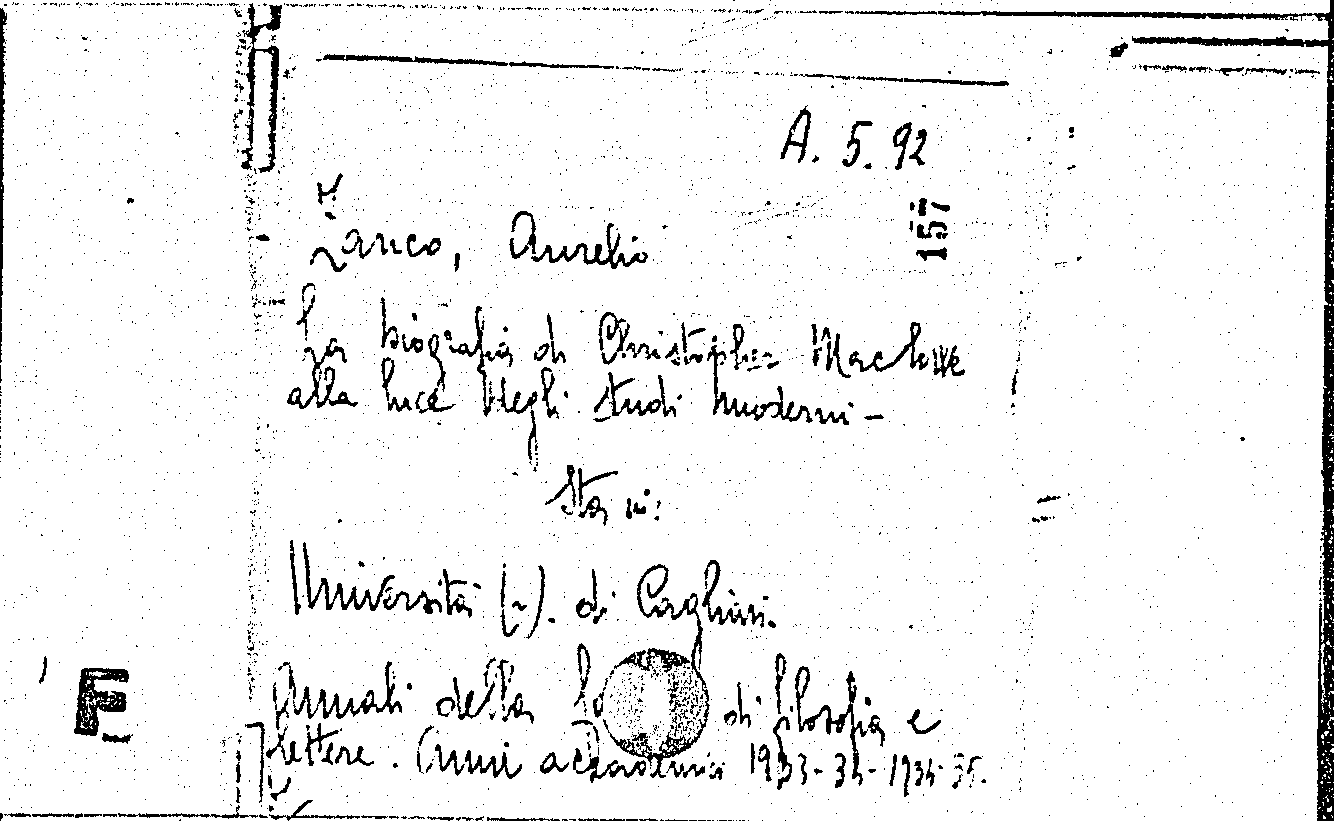 A. 5. 92
157
Zanco, Aurelio
La biografia di Christopher Marlowe
alla luce degli studi moderni -
Sta in:
Università (-). di Cagliari.
Annali della di filosofia e
lettere. (Anni accademici 1933-34-1934-35.
F